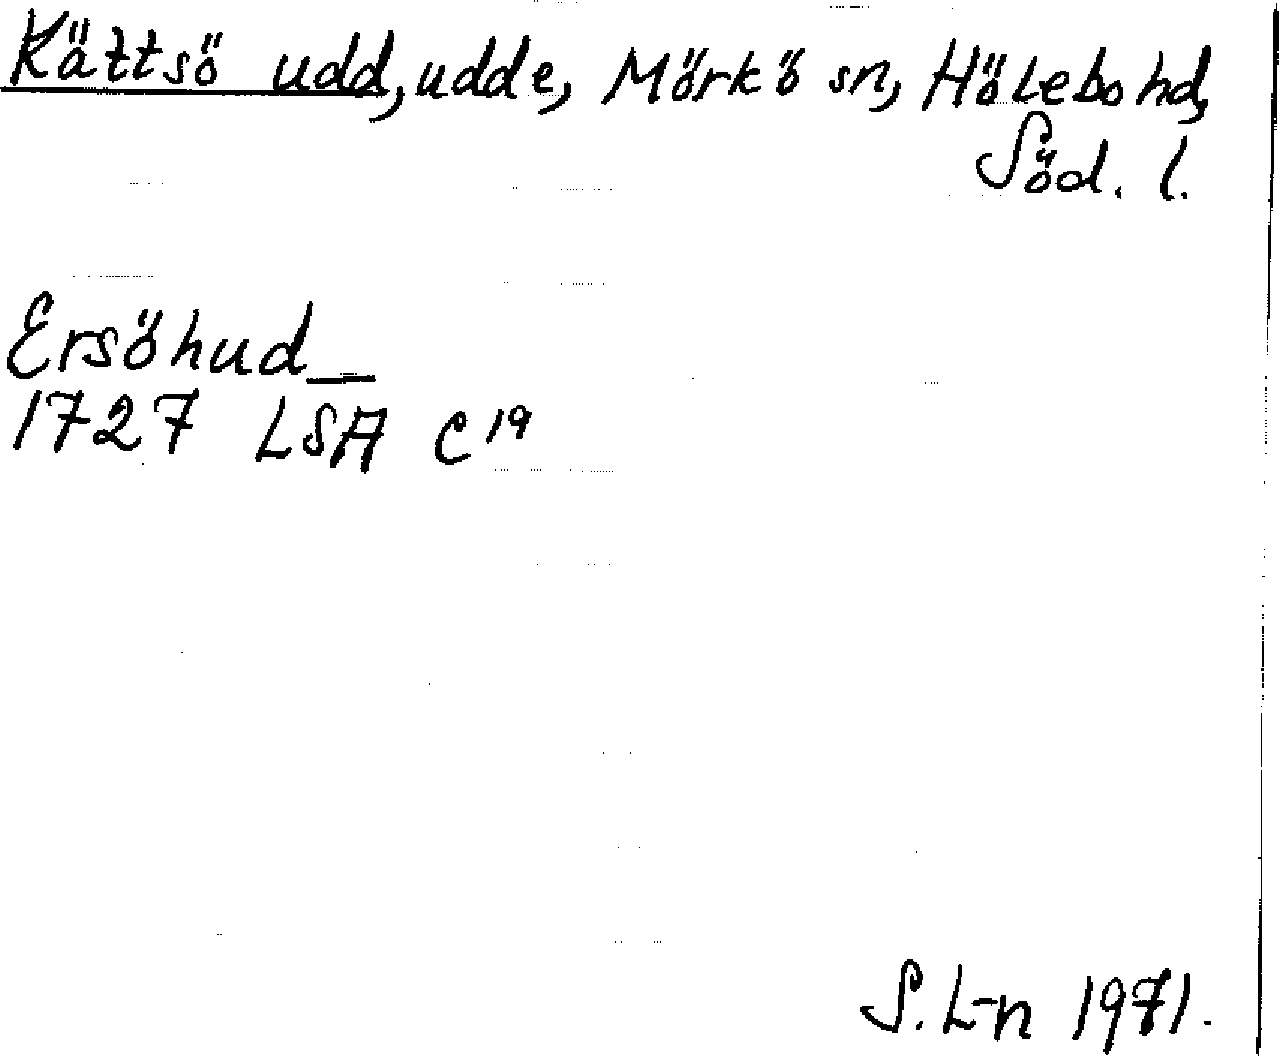 Kättsö udd, udde, Mörkö sn, Hölebo hd,
Söd. l.
Ersöhud_
1727 LSA C19
S. L-n 1971.